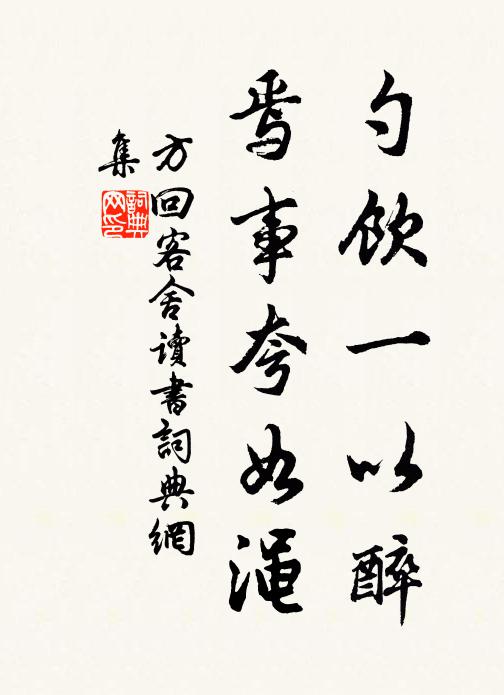 勺飲一以醉
焉事夸如澠
方回客舍讀書詞典網
集
詞典
网印